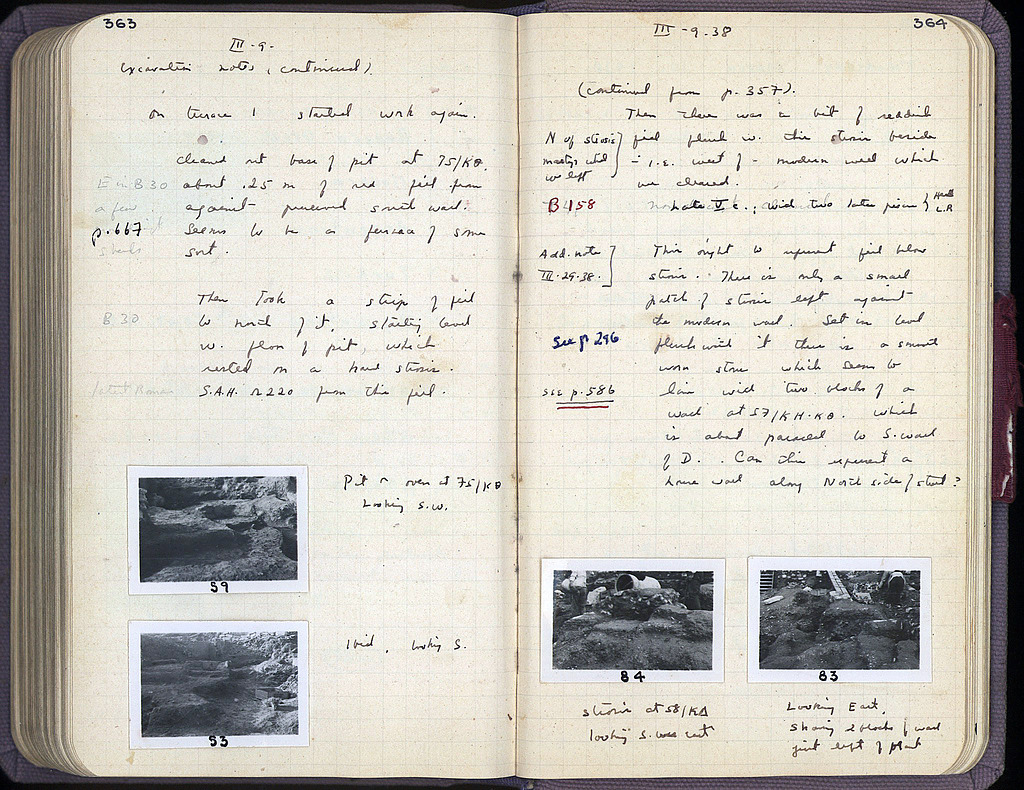 363
III-9-
Excavation notes, (continued).
On terrace 1 started work again.
Cleared out base of pit at 75/KΘ.
E in B 30
about .25 m of red fill from
a few
against preserved south wall.
p. 667
Seems to be a furnace of some
sherds
sort.
Then took a strip of fill
B 30
to north of it, starting level
w. floor of pit, which
rested on a hard strosis.
Roman
S.A.H. 220 from this fill.
Pit or oven at 75/KΘ
Looking S.W.
59
Ibid, looking S.
53
364
III-9-38
(continued from p. 357).
Then there was a bit of reddish
N of strosis
fill flush w. this strosis beside
- i.e. west of - modern well which
we left
we cleared.
B 158
Late V c.; with two later pieces
L.R
Add. note
III-29-38.
This ought to represent fill below
strosis. There is only a small
patch of strosis left against
the modern wall. Set in level
See p 296
flush with it there is a smooth
worn stone which seems to
see p. 586
line with two blocks of a
wall at 57/KH-KΘ. which
is about parallel to S. wall
of D. Can this represent a
house wall along North side of street?
84
83
strosis at 58/KΔ
looking S.
Looking East,
Showing 2 blocks of wall
just left of plank